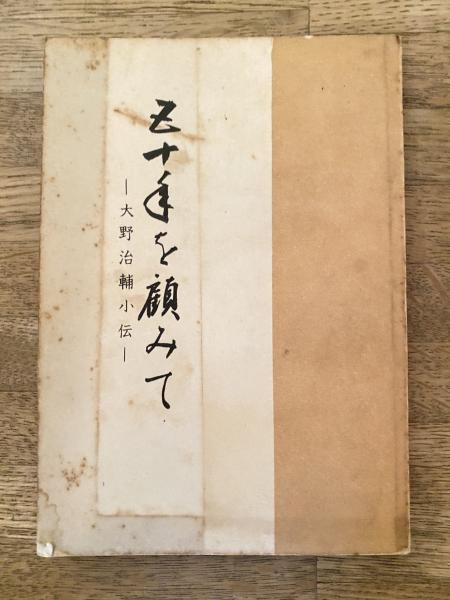 五十年を顧みて
―大野治輔小伝―